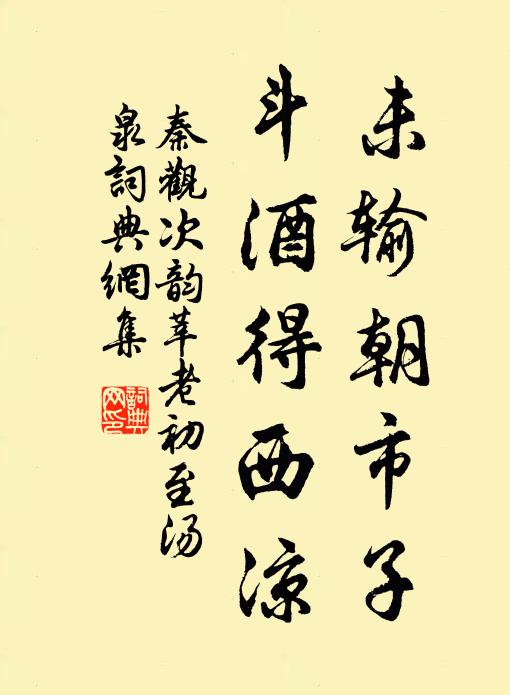 未输朝市子
斗酒得西凉
秦觀次韵莘老初至汤
泉詞典網集
詞典
网印